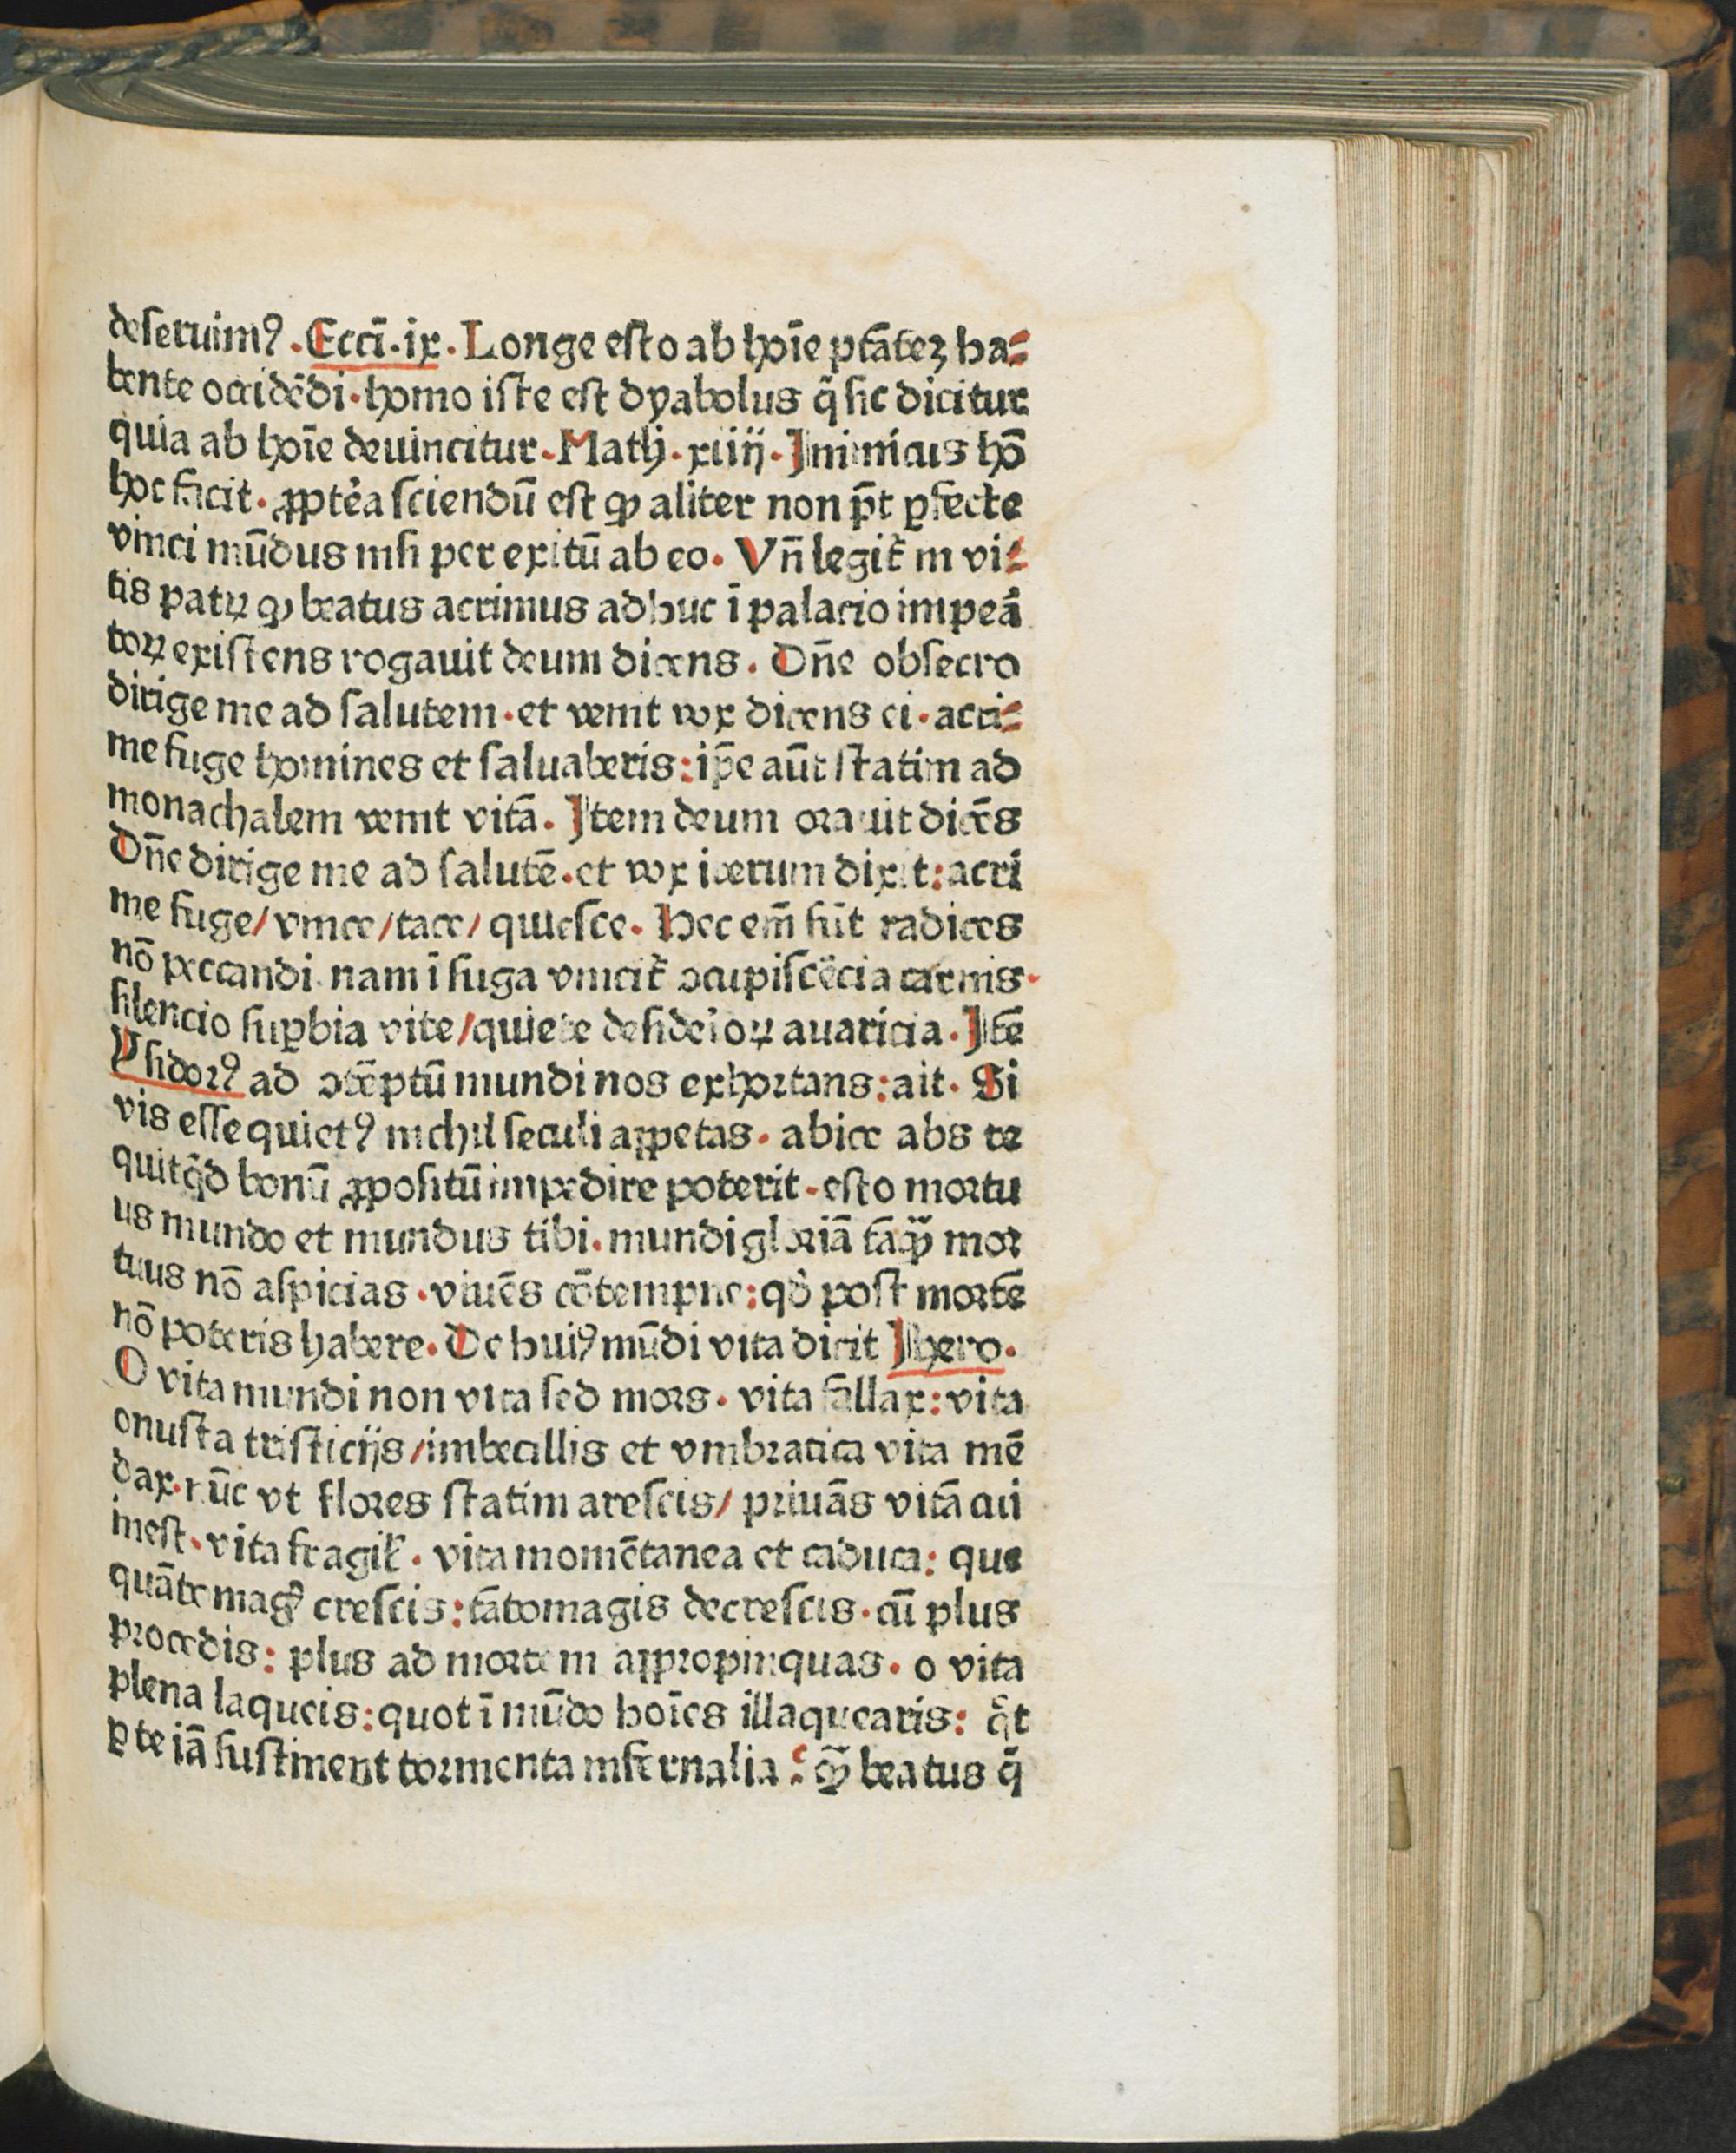 deſeruimꝰ. Ecci̅. ix. Longe eſto ab hoi̅e ptātez ha⸗
bente occidēdi. homo iſte eſt dyabolus q̄ ſic dicitur
quia ab hoi̅e deuincitur. Math. xiiij. Inimicus hō
hoc facit. ꝓptēa ſciendū eſt ꝙ aliter non pt̄ ꝑfecte
vinci mūdus niſi per exitū ab eo. Vn̄ legit̄ in vi⸗
tis patꝝ ꝙ beatus acrimus adhuc ī palacio impea̅
toꝝ exiſtens rogauit deum dicens. Dn̄e obſecro
dirige me ad ſalutem. et venit vox dicens ei. acri⸗
me fuge homines et ſaluaberis: ip̄e aūt ſtatim ad
monachalem venit vitā. Item deum orauit dicēs
Dn̄e dirige me ad ſalutē. et vox iterum dixit: acri
me fuge/ vince/ tace/ quieſce. Hec em̄ ſūt radices
nō peccandi. nam ī fuga vincit̄ ꝯcupiſcēcia carnis.
ſilencio ſuꝑbia vite/ quiete deſideioꝝ auaricia. Itē
Yſidorꝰ ad ꝯtēptū mundi nos exhortans: ait. Si
vis eſſe quietꝰ nichil ſeculi appetas. abice abs te
quitq̄d bonū ꝓpoſitū impedire poterit. eſto mortu
us mundo et mundus tibi. mundi gloriā tāꝙ̄ mor
tuus nō aſpicias. viuēs cōtempne: qd̄ poſt mortē
nō poteris habere. De huiꝰ mūdi vita dicit Ihero.
O vita mundi non vita ſed mors. vita fallax: vita
onuſta triſticijs/ imbecillis et vmbratica vita mē
dax. nūc vt flores ſtatim areſcis/ priuās vitā cui
ineſt. vita fragil̄. vita momētanea et caduca: que
quāto magꝭ creſcis: tāto magis decreſcis. cū plus
procedis: plus ad mortem appropinquas. o vita
plena laqueis: quot ī mūdo hoi̅es illaquearis: q̄t
ꝑ te iā ſuſtinent tormenta infernalia: ꝙ̄ beatus q̄